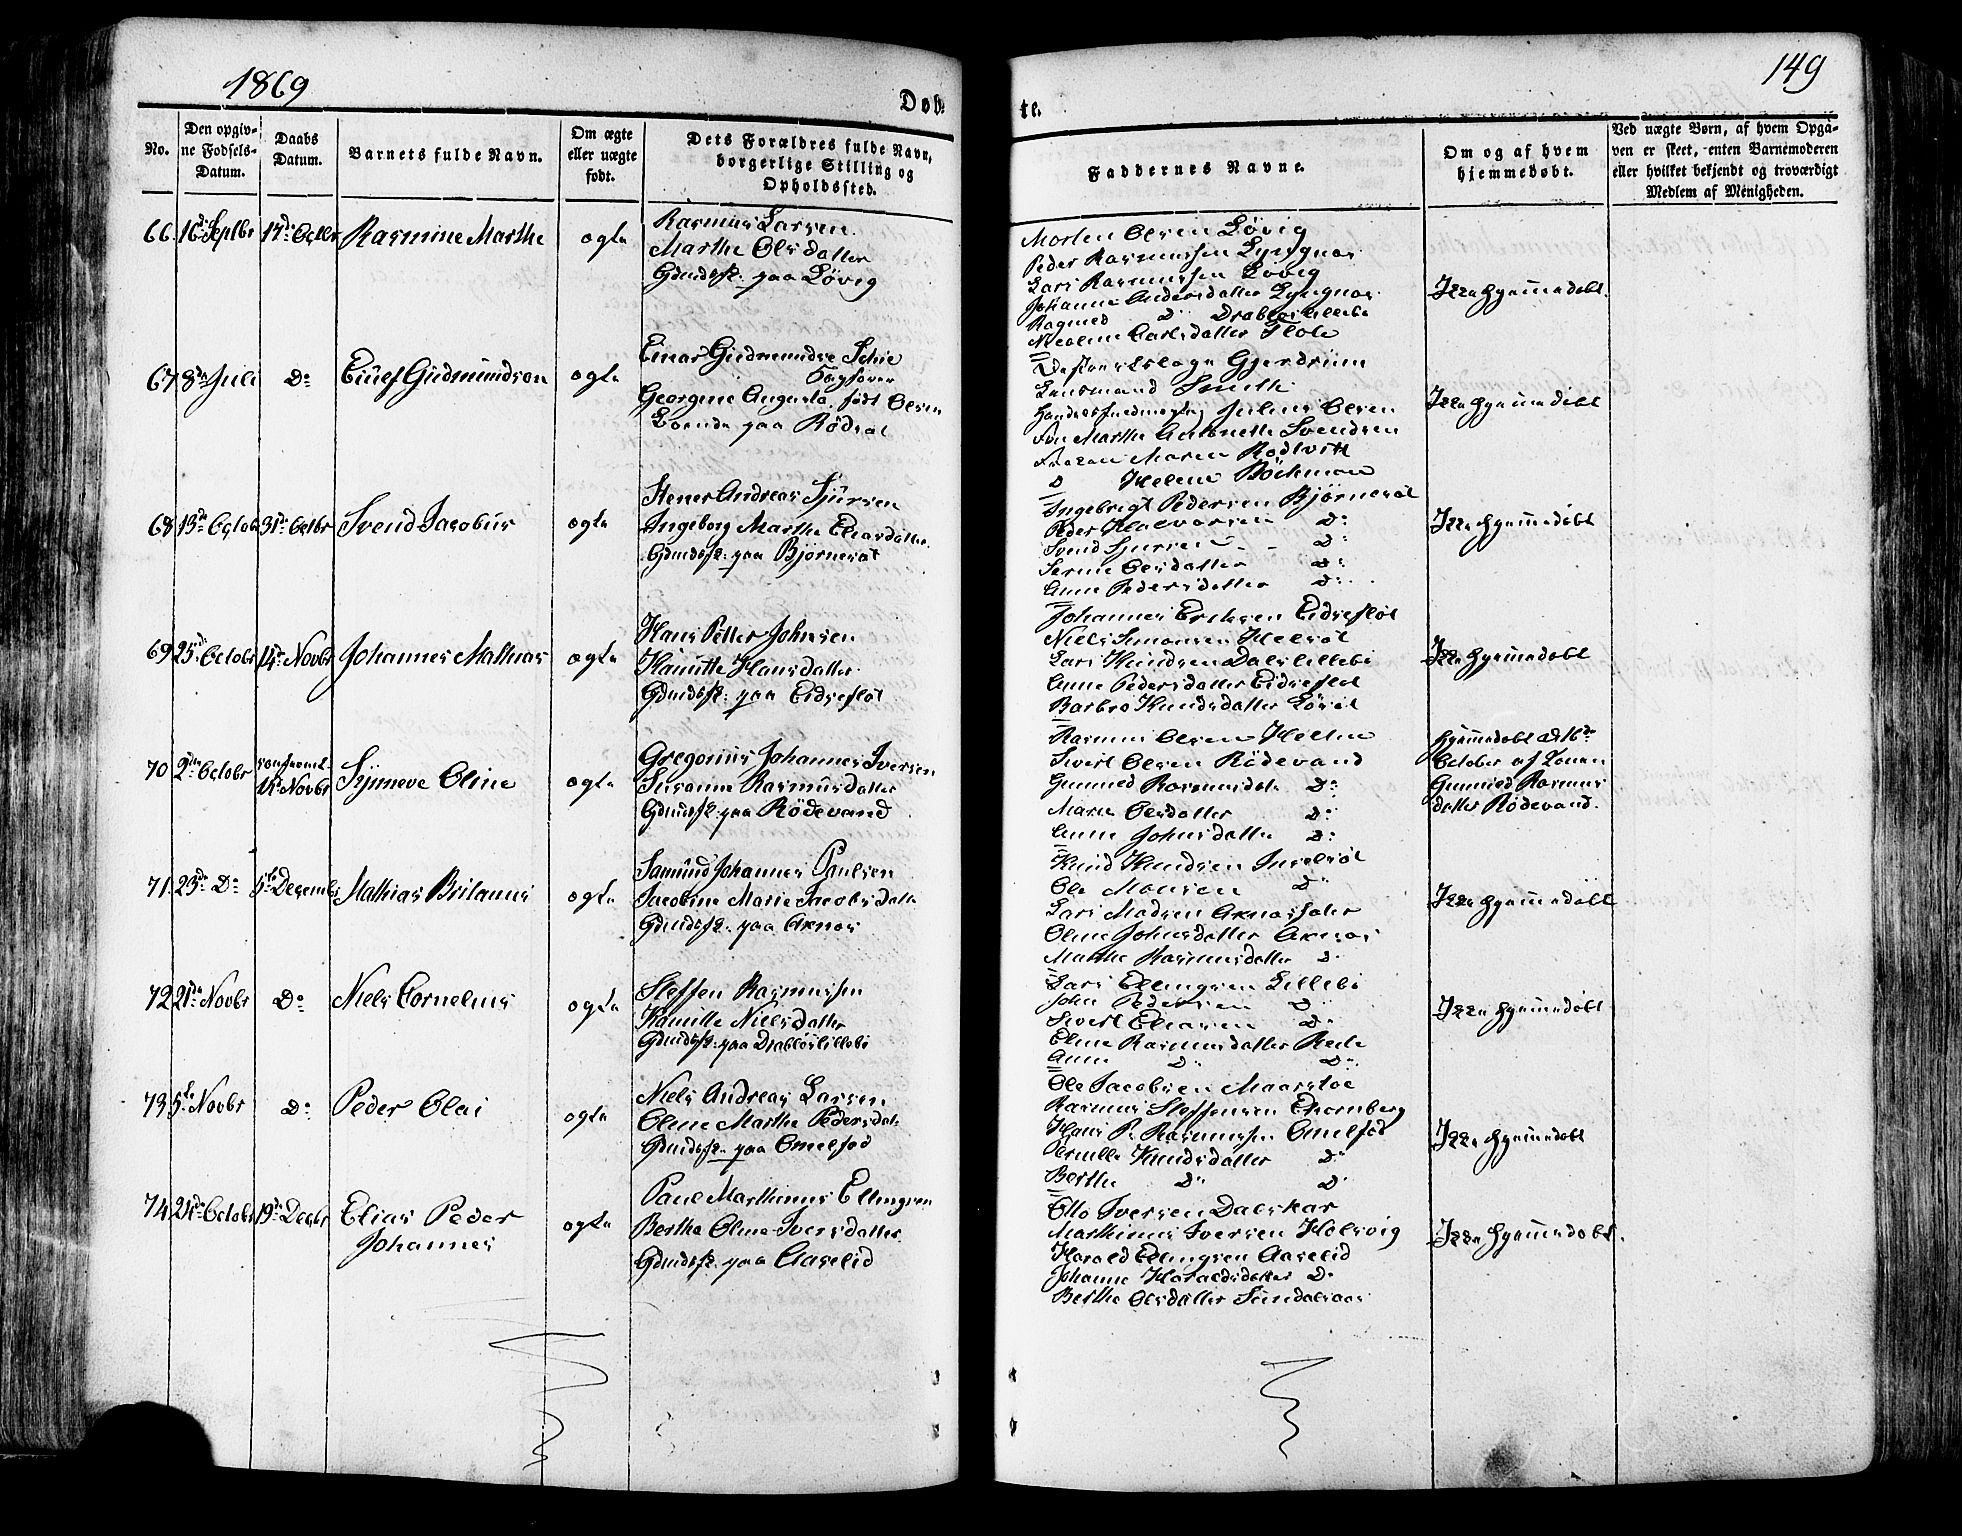 1869
149
Døb-
te.
No.
Den opgiv-
ne Fødsels-
Datum.
Daabs
Datum.
Barnets fulde Navn.
Om ægte
eller uægte
født.
Dets Forældres fulde Navn,
borgerlige Stilling og
Opholdssted.
Faddernes Navne.
Om og af hvem
hjemmedøbt.
Ved uægte Børn, af hvem Opga-
ven er skeet, enten Barnemoderen
eller hvilket bekjendt og troværdigt
Medlem af Menigheden.
66. 16de Septbr 17de Octbr Rasmine Marthe ægte
Rasmus Larsen
Marthe Olsdatter
Gdmdsf: paa Løvig
Morten Olsen Løvig
Peder Rasmussen Lyngnæs
Lars Rasmussen Løvig
Johanne Andersdatter Lyngnæs
Ragnild Do Drabløslillebø
Nicoline Carlsdatter Flote
Ikke hjemmedøbt.
67 8de Juli Do Einef Gudmundson ægte
Einar Gudmundsøn Schie
Georgine Augusta født Olsen
Boende paa Rödsæt
Gjerdrum
Lensmand Smith
Julius Olsen
Marthe Antonette Svendsen
Frøken Maren Rodtvitt
D Helene Böckman
Ikke hjemmedöbt
68 13de Octob 31te Octbr Svend Jacobus ægte
Stener Andreas Sjursen
Ingeborg Marthe Eliasdatter
Gdmdsf: paa Bjørnesæt
Ingebrigt Pedersen Bjørnesæt
Peder Halvorsen Do
Svend Sjursen - - Do
Serine Olsdatter Do
Anne Pedersdatter Do
Ikke hjemmedøbt
69 25de Octobr 14de Novbr Johannes Mathias ægte
Hans Petter Johnsen
Hanitte Hansdatter
Gdmdsf: paa Eidsefløt
Johannes Eriksen Eidsefløt
Niels Simonsen
Lars Knudsen Dalslillebø
Anne Pedersdatter Eidsefløt
Barbro Knudsdatter
Ikke hjemmedøbt
70 2den Octobr confirmt. 14de Novbr Synneve Oline ægte
Gregorius Johannes Iversen
Susanne Rasmusdatter
Gdmdsf: paa Rödevand
Rasmus Olsen Holm
Sivert Olsen Rödevand
Gunnild Rasmusdatr Do
Maren Olsdatter Do
Anne Johnsdatter Do
hjemmedøbt d. 16de
October af Konen
Gunnild Rasmus
datter Rødevand.
71. 23de Do 5te Decembr Mathias Britanus ægte
Samund Johannes Paulsen
Jacobine Marie Jacobsdatter
Gdmdsf: paa Aknæs
Knud Knudsen
Ole Monsen Do
Lars Madsen
Oline Johnsdatter Aknæs
Marthe Rasmusdatter Do
Ikke hjemmedøbt
72 21de Novbr Do Niels Cornelius ægte
Steffen Rasmussen
Hanitte Nielsdatter
Gdmdsf: paa Drabløslillebø
Lars Ellingsen Lillebø
John Pedersen Do
Sivert Eliasen Do
Eline Rasmusdatter
Anne Do Do
Ikke hjemmedøbt
73 5te Novbr Do Peder Olai ægte
Niels Andreas Larsen
Oline Marthe Pedersdatr
Gdmdsf: paa Omelfod
Ole Jacobsen
Rasmus Steffensen Thornberg
Hans P. Rasmussen Omelfod
Pernille Knudsdatter Do
Berthe Do Do
Ikke hjemmedøbt
74 24de Octobr 19de Decbr Elias Peder
Johannes ægte
Paul Marthinus Ellingsen
Berthe Oline Iversdatter
Gdmdsf: paa Aaselid
Otto Iversen Dalskar
Marthinus Iversen Holsvig
Harald Ellingsen Aaselid
Johanne Haraldsdatter Do
Berthe Olsdatter Sundalsaas
Ikke hjemmedøbt.